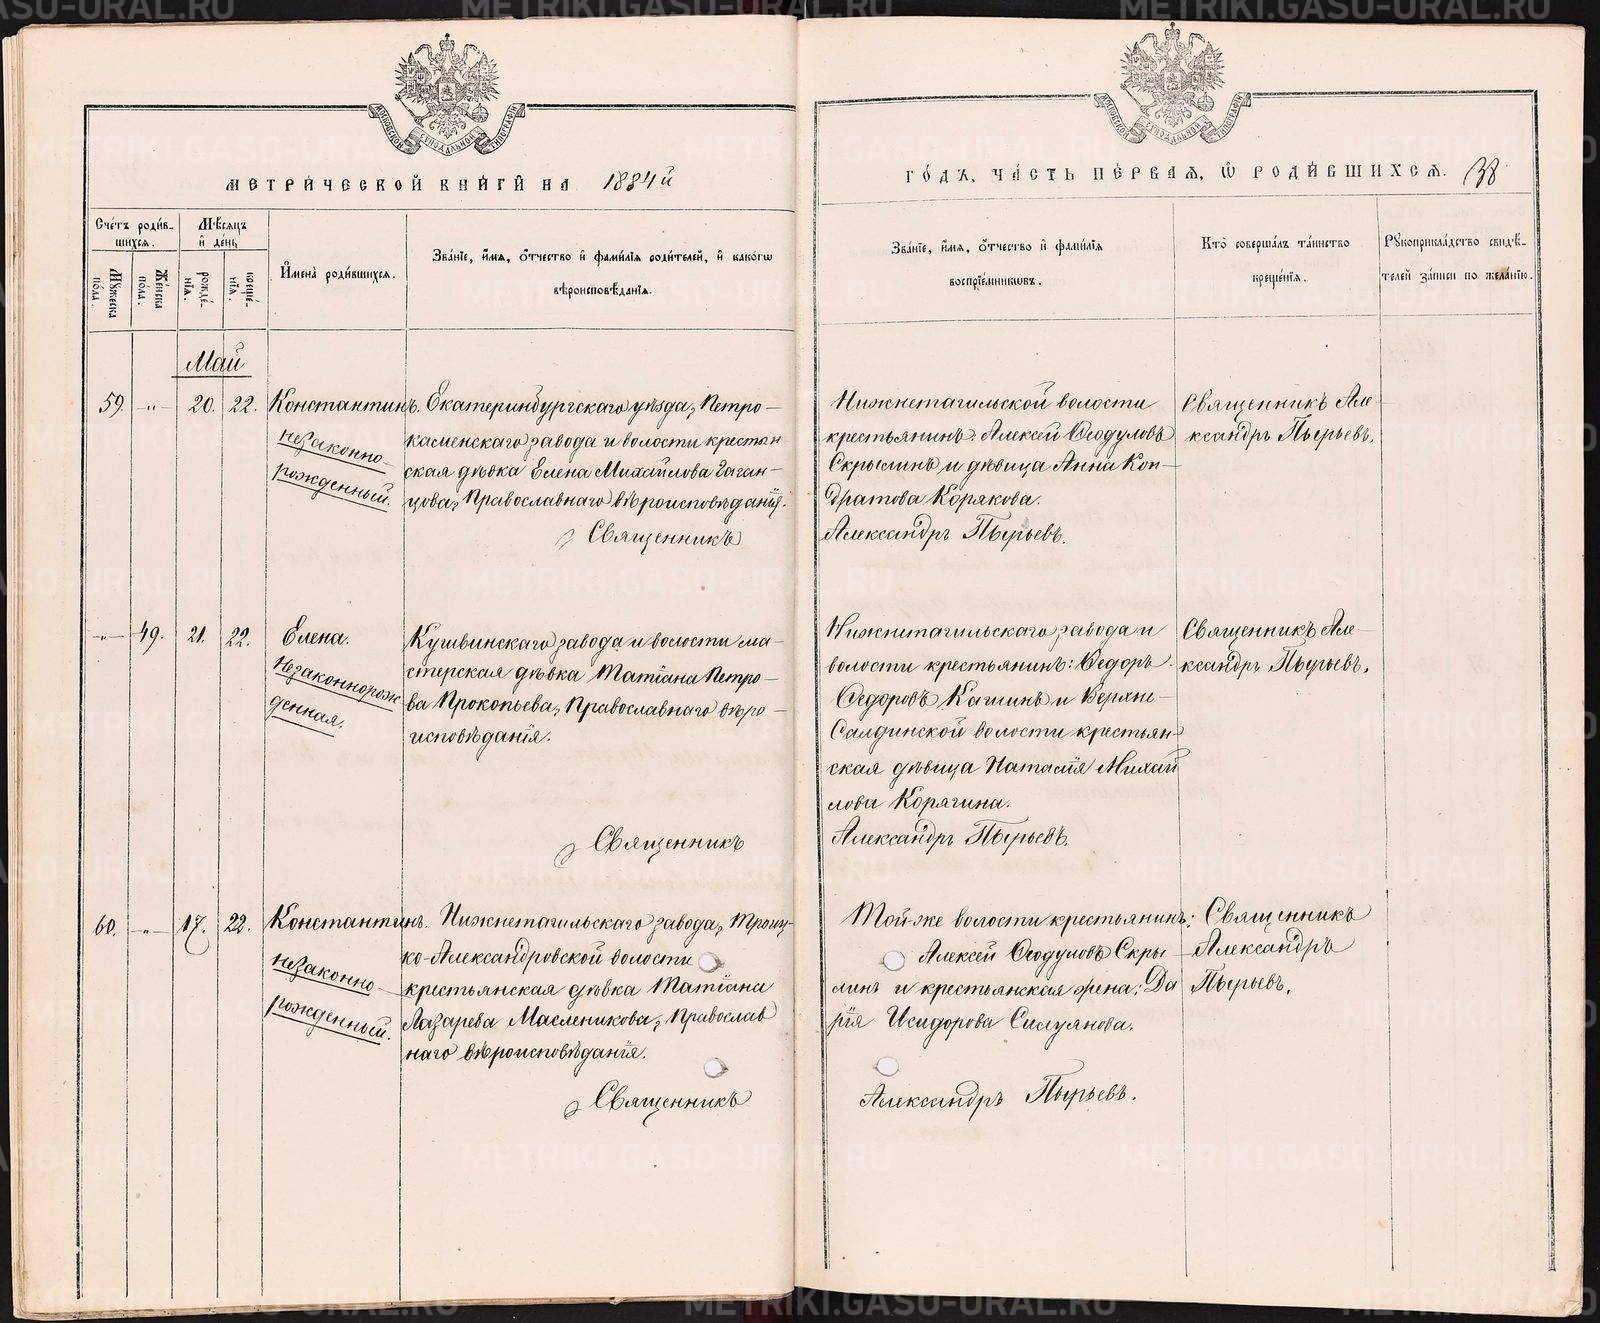 МЕТРИ́ЧЕСКОЙ КНИ́ГИ НА 1884й
ГО́ДЪ, ЧА́СТЬ ПЕ́РВАЯ, Ѿ РОДИ́ВШИХСЯ. 38
МОСКОВСКОЙ СѴНОДАЛЬНОЙ ТИПОГРАФІИ
МОСКОВСКОЙ СѴНОДАЛЬНОЙ ТИПОГРАФІИ
Сче́тъ роди́в-
шихся.
Мꙋ́жеска по́ла.
Же́нска по́ла.
Мѣ́сяцъ
и҆ де́нь
рожде́нїя.
креще́нїя.
И҆мена̀ роди́вшихся.
Зва́нїе, и҆́мя, ѻ҆́тчество и҆ фами́лїя роди́телей, и҆ како́гѡ
вѣроисповѣ́данїя.
Зва́нїе, и҆́мя, ѻ҆́тчество и҆ фами́лїя
воспрїе́мникѡвъ.
Кто̀ соверша́лъ та́инство
креще́нїя.
Рꙋкоприкла́дство свидѣ́-
телей за́писи по жела́нїю.
Май
59. -„- 20. 22. Константинъ.
незаконно
рожденный.
Екатеринбургскаго уѣзда, Петро-
каменскаго завода и волости крестьян
ская дѣвка Елена Михайлова Гаган-
цова, Православнаго вѣроисповѣданія.
Священникъ
Нижнетагильской волости
крестьянинъ: Алексей Ѳеодуловъ
Скрылинъ и дѣвица Анна Кон-
дратова Корякова.
Александръ Пырьевъ.
Священникъ Але-
ксандръ Пырьевъ.
-„- 49. 21. 22. Елена.
Незаконнорож
денная.
Кушвинскаго завода и волости ма-
стерская дѣвка Татіана Петро-
ва Прокопьева, Православнаго вѣро-
исповѣданія.
Священникъ
Нижнетагильскаго завода и
волости крестьянинъ: Ѳедоръ
Ѳедоровъ Кашинъ и Верхне-
Салдинской волости крестьян-
ская дѣвица Наталія Михай
лова Корягина.
Александръ Пырьевъ.
Священникъ Але-
ксандръ Пырьевъ.
60. -„- 17. 22. Константинъ.
незаконно
рожденный.
Нижнетагильскаго завода, Троиц-
ко-Александровской волости
крестьянская дѣвка Татіана
Лазарева Масленикова, Православ
наго вѣроисповѣданія.
Священникъ
Той-же волости крестьянинъ:
Алексей Ѳеодуловъ Скры
линъ и крестьянская жена: Да
рія Исидорова Силуянова.
Александръ Пырьевъ.
Священникъ
Александръ
Пырьевъ.
METRIKI.GASO-URAL.RU